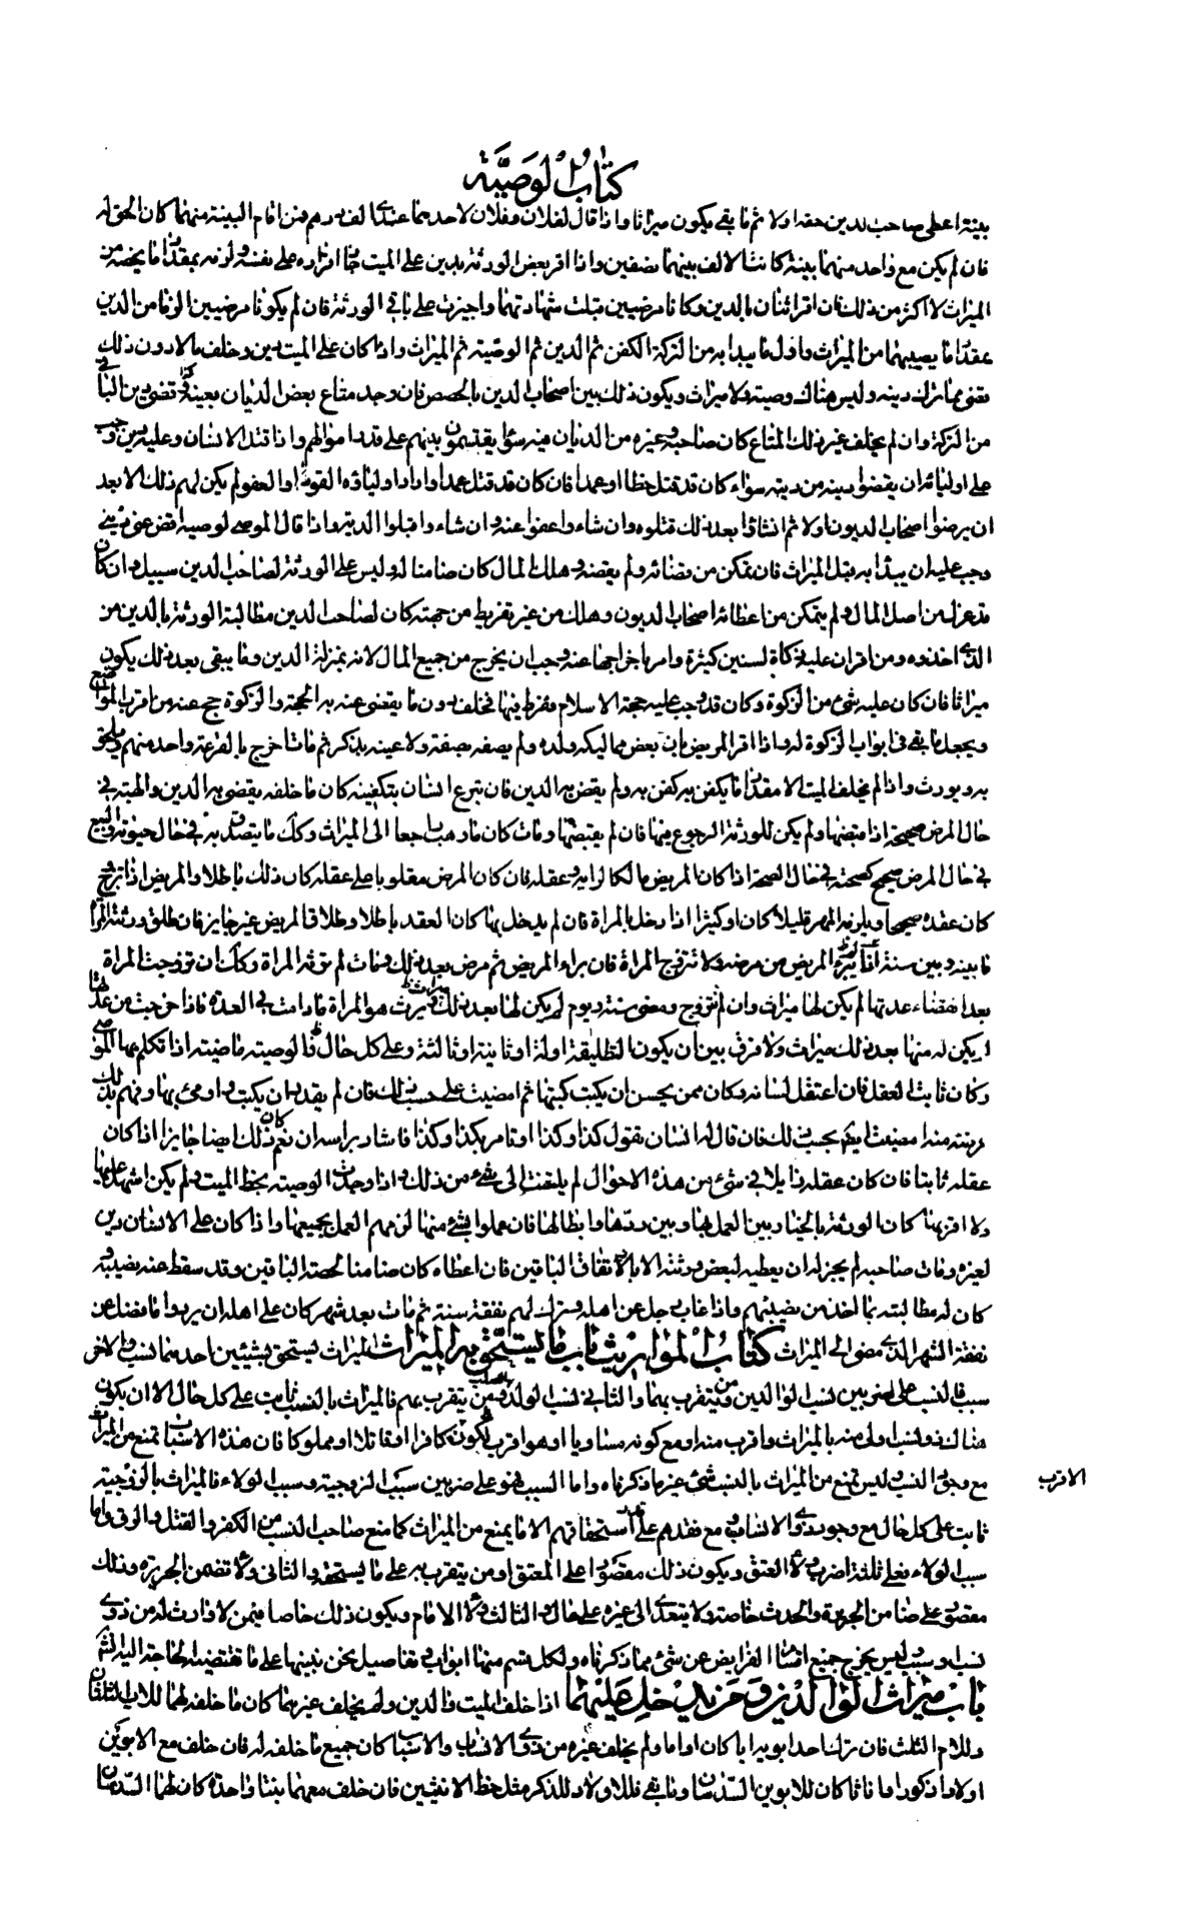 كتاب الوصية
بينة اعطى صاحب الدين حقه اولا ثم ما بقى يكون ميراثا واذا قال لفلان وفلان لاحدهما عندى الف درهم فمن اقام البينة منهما كان الحق له
فان لم يكن مع واحد منهما بينة كانت الالف بينهما نصفين واذا اقر بعض الورثة بدين على الميت جاز اقراره على نفسه ولزمه بمقدار ما يخصه من
الميراث لا اكثر من ذلك فان اقر اثنان بالدين وكانا مرضيين قبلت شهادتهما واجيزت على باقى الورثة فان لم يكونا مرضيين الزما من الدين
بمقدار ما يصيبهما من الميراث واول ما يبدا به من التركة الكفن ثم الدين ثم الوصية ثم الميراث واذا كان على الميت دين وخلف مالا دون ذلك
قضى بما ترك دينه وليس هناك وصية ولا ميراث ويكون ذلك بين اصحاب الدين بالحصص فان وجد متاع بعض الديان بعينه وكان فى الباقى
من التركة وان لم يخلف غير ذلك المتاع كان صاحبه وغيره من الديان فيه سواء يقتسمون بينهم على قدر اموالهم واذا قتل الانسان وعليه دين وجب
على اوليائه ان يقضوا دينه من ديته سواء كان قد قتل خطا او عمدا فان كان قد قتل عمدا وارادوا اولياؤه القود او العفو لم يكن لهم ذلك الا بعد
ان يرضوا اصحاب الديون اولا ثم ان شاؤا بعد ذلك قتلوه وان شاءوا عفوا عنه وان شاءوا قبلوا الدية واذا قال الموصى لوصيه اقض عنى دينى
وجب عليه ان يبدا به قبل الميراث فان تمكن من قضائه ولم يقضه وهلك المال كان ضامنا له وليس على الورثة لصاحب الدين سبيل وان كان
قد عزله من اصل المال ولم يتمكن من اعطائه اصحاب الديون وهلك من غير تفريط من جهته كان لصاحب الدين مطالبة الورثة بالدين من
الذى اخذوه ومن اقر ان عليه زكاة لسنين كثيرة وامر باخراجها عنه وجب ان يخرج من جميع المال لانه بمنزلة الدين وما يبقى بعد ذلك يكون
ميراثا فان كان عليه شئ من الزكوة وكان قد وجب عليه حجة الاسلام ففرط فيها فخلف دون ما يقضى عنه به الحجة والزكوة حج عنه من اقرب المواضع
ويجعل ما بقى فى ابواب الزكوة له واذا اقر المريض بان بعض مماليكه ولده ولم يصفه بصفة ولا عينه بذكر ثم مات اخرج بالقرعة واحد منهم ويلحق
به ويورث واذا لم يخلف الميت الا مقدار ما يكفن به كفن به ولم يقض به الدين فان تبرع انسان بتكفينه كان ما خلفه يقضى به الدين والهبة فى
حال المرض صحيحة اذا قبضها ولم يكن للورثة الرجوع فيها فان لم يقبضها ومات كان ما وهب راجعا الى الميراث وكذلك ما يتصدق به فى حال حيوته والبيع
فى حال المرض صحيح كصحته فى حال الصحة اذا كان المريض مالكا لرايه وعقله فان كان المرض مغلوبا على عقله كان ذلك باطلا والمريض اذا تزوج
كان عقده صحيحا ويلزمه المهر قليلا كان او كثيرا اذا دخل بالمراة فان لم يدخل بها كان العقد باطلا وطلاق المريض غير جايز فان طلق ورثته المراة
ما بينه وبين سنة اذا لم يبرء المريض من مرضه ولا تتزوج المراة فان برا المريض ثم مرض بعد ذلك ومات لم ترثه المراة وكذلك ان تزوجت المراة
بعد انقضاء عدتها لم يكن لها ميراث وان لم تتزوج ومضى سنة ويوم لم يكن لها بعد ذلك ميراث ويرث هو المراة ما دامت فى العدة فاذا خرجت من عدتها
لم يكن له منها بعد ذلك ميراث ولا فرق بين ان يكون التطليقة اولة او ثانية او ثالثة وعلى كل حال والوصية ماضية اذا تكلم بها الموصى
وكان ثابت العقل فان اعتقل لسانه وكان ممن يحسن ان يكتب كتبها ثم امضيت على حسب ذلك فان لم يقدر ان يكتب واومى بها وفهم بذلك
غرضه منه امضيت ايضا بحسب ذلك فان قال له انسان تقول كذا وكذا او تامر بكذا وكذا فاشار براسه ان نعم كان ذلك ايضا جايزا اذا كان
عقله ثابتا فان كان عقله زايلا فى شئ من هذه الاحوال لم يلتفت الى شئ من ذلك واذا وجدت الوصية بخط الميت ولم يكن اشهد عليها
ولا اقر بها كان الورثة بالخيار بين العمل بها وبين ردها وابطالها فان عملوا بشئ منها لزمهم العمل بجميعها واذا كان على الانسان دين
لغيره ومات صاحبه لم يجز له ان يعطيه لبعض ورثته الا بالاتفاق الباقين فان اعطاه كان ضامنا لحصة الباقين وقد سقط عنه نصيبه
كان له مطالبته بما اخذ من نصيبهم واذا غاب رجل عن اهله وترك لهم نفقة سنة ثم مات بعد شهر كان على اهله ان يردوا ما فضل عن
نفقة الشهر الذى مضى الى الميراث كتاب المواريث باب ما يستحق به الميراث الميراث يستحق بشيئين احدهما نسب والاخر
سبب فالنسب على ضربين نسب الوالدين ومن يتقرب بهما والثانى نسب الولد للصلب ومن يتقرب بهم فالميراث بالنسب ثابت على كل حال الا ان يكون
هناك ذو نسب اولى منه بالميراث واقرب منه او مع كونه مساويا او هو اقرب يكون كافرا او قاتلا او مملوكا فان هذه الاسباب تمنع من الميراث
مع وجود النسب وليس تمنع من الميراث بالنسب شئ غير ما ذكرناه واما السبب فهو على ضربين سبب الزوجية وسبب الولاء فالميراث بالزوجية
الاقرب
ثابت على كل حال مع وجود ذوى الانساب ومع فقدهم على استحقاقهم الا ما يمنع من الميراث كما منع صاحب النسب من الكفر والقتل والرق واما
سبب الولاء فعلى ثلثة اضرب ولاء العتق ويكون ذلك مقصورا على المعتق او من يتقرب به على ما يستحقه والثانى ولاء تضمن الجريرة وذلك
مقصور على ضامن الجريرة والحدث خاصة ولا يتعدى الى غيره على حال والثالث ولاء الامام ويكون ذلك خاصا فيمن لا وارث له من ذوى
نسب وسبب وليس يخرج جميع اقسام الفرايض عن شئ مما ذكرناه ولكل قسم منها ابواب وتفاصيل نحن نبينها على ما تقتضيه الحاجة اليه انشم
باب ميراث الوالدين ومن يدخل عليهما اذا خلف الميت والدين ولم يخلف غيرهما كان ما خلفه لهما للاب الثلثان
وللام الثلث فان ترك احد ابويه ابا كان او اما ولم يخلف غيره من ذوى الانساب والاسباب كان جميع ما خلفه له فان خلف مع الابوين
اولادا ذكورا واناثا كان للابوين السدسان وما بقى فللاولاد للذكر مثل حظ الانثيين فان خلف معهما بنتا واحدة كان لهما السدسان